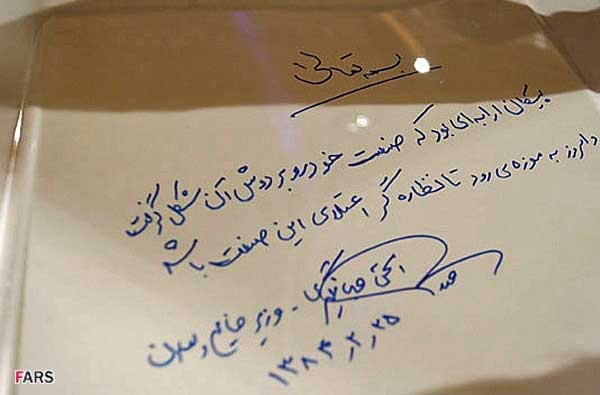 بسمه تعالی
پیکان ارابه‌ای بود که صنعت خودرو بر دوش آن شکل گرفت
و امروز به موزه می‌رود تا نظاره‌گر اعتلای این صنعت باشد
اسحق جهانگیری - وزیر صنایع و معادن
۱۳۸۴,۲,۲۵
FARS